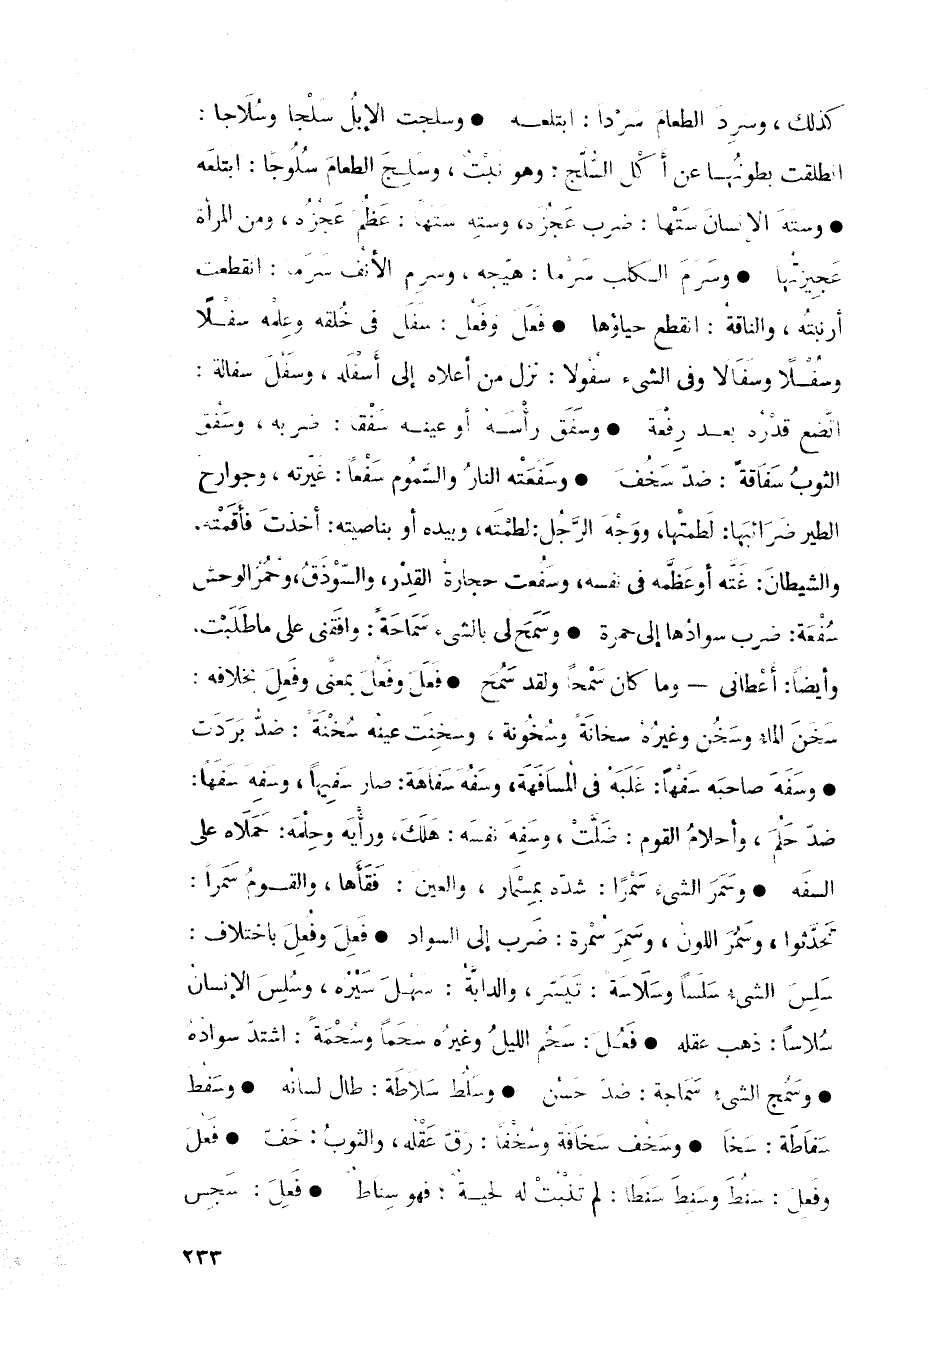 كذلك ، وسرِدَ الطعامَ سَرْداً : ابتلعـه ● وسلجت الإبلُ سَلْجا وسُلَاجا :
انطلقت بطونُهـا عن أكْل السُّلَّج : وهو نبْتٌ ، وسَلِـجَ الطعامَ سُلُوجًا : ابتلعَه
● وستَهَ الإنسانَ سَتْها : ضرب عَجُزَه، وستِه سَتَهاً : عَظُمَ عَجُزُه ، ومن المرأة
عَجِيزتُها ● وسَرَمَ الـكلب سَرْما : هيّجه ، وسرِم الأنْف سَرَما : انقطعت
أرنبتُه ، والناقةُ : انقطع حياؤها ● فَعَلَ وَفَعُل : سَفَل فى خُلقه وعِلْمه سفْـلًا
وسُفْـلًا وسفَالا وفى الشىء سفُولا : نزل من أعلاه إلى أَسْفَله ، وسَفُلَ سفالة :
اتَّضع قدْرُه بعـد رِفْعة ● وسَفَق رأْسَـهُ أو عينـه سَفْقا : ضربه ، وسَفُق
الثوبُ سَفَاقةً : ضدّ سَخُفَ ● وسَفَعَتْه النارُ والسَّمُوم سَفْعاً : غيّرته ، وجوارح
الطير ضَرَائبَها: لَطمتْها، ووَجْهَ الرَّجُل: لطمْتَه، وبيده أو بناصيته: أخذتَ فأقَمْته.
والشيطانَ: غَتَّه أو عَظَّمه فى نفسه، وسَفُعت حجارةُ القِدْر، والسَّوْذَقُ، وحُمُرُ الوحش
سُفْعَة: ضرب سوادُها إلى حمرة ● وسَمَح لى بالشىء سَمَاحَةً: وافقنى على ماطَلَبْت.
وأيضاً: أعْطانى — وما كان سَمْحاً ولقد سَمُحَ ● فَعَلَ وفَعُلَ بمعنًى وفَعِلَ بخلافه :
سَخَنَ الماءُ وسَخُن وغيرُه سخانَةً وسُخُونة ، وسخِنَت عينُه سُخْنَةً : ضدُّ بَرَدَت
● وسَفَهَ صاحبَه سَفْهاً: غَلَبَهُ فى الْمسَافَهَة، وسَفُهَ سَفَاهَة: صار سَفِيهاً ، وسَفِهَ سَفَهًا:
ضدّ حَلُمَ ، وأحلامُ القوم : ضَلَّتْ ، وسَفِهَ نفسَه : هَلَكَ، ورأيَه وحِلْمَه: حَمَلَاه على
السفَه ● وسَمَرَ الشىءَ سَمْرًا : شدّه بمِسْمار ، والعينَ : فَقَأَها ، والقـومُ سَمَراً :
تَحَدَّثوا ، وسَمُرَ اللونُ ، وسَمِرَ سُمْرة : ضَرب إلى السواد ● فَعِلَ وفُعِلَ باختلاف :
سَلِسَ الشىءُ سَلَساً وسَلَاسَة : تيَسّر ، والدابّةُ : سهُـلَ سَيْرُه ، وسُلِسَ الإنسانُ
سُلاساً : ذهب عقله ● فَعُـلَ : سَحُم الليلُ وغيرُه سحَمًا وسُحْمَةً : اشتدّ سوادُهُ
● وسَمُج الشىءُ سَمَاجة : ضدّ حَسُنَ ● وسَلُط سَلَاطَة : طال لسانُه ● وسَفُط
سَفَاطَة : سَخا ● وسَخُف سَخَافَة وسُخْفًا : رَقّ عَقْلُه ، والثوبُ : خَفّ ● فَعُلَ
وفَعِلَ : سَنُطَ وسَنِطَ سَنَطا : لم تَنْبُتْ له لحيـةٌ : فهو سِناطٌ ● فَعِلَ : سَجِس
٢٣٣